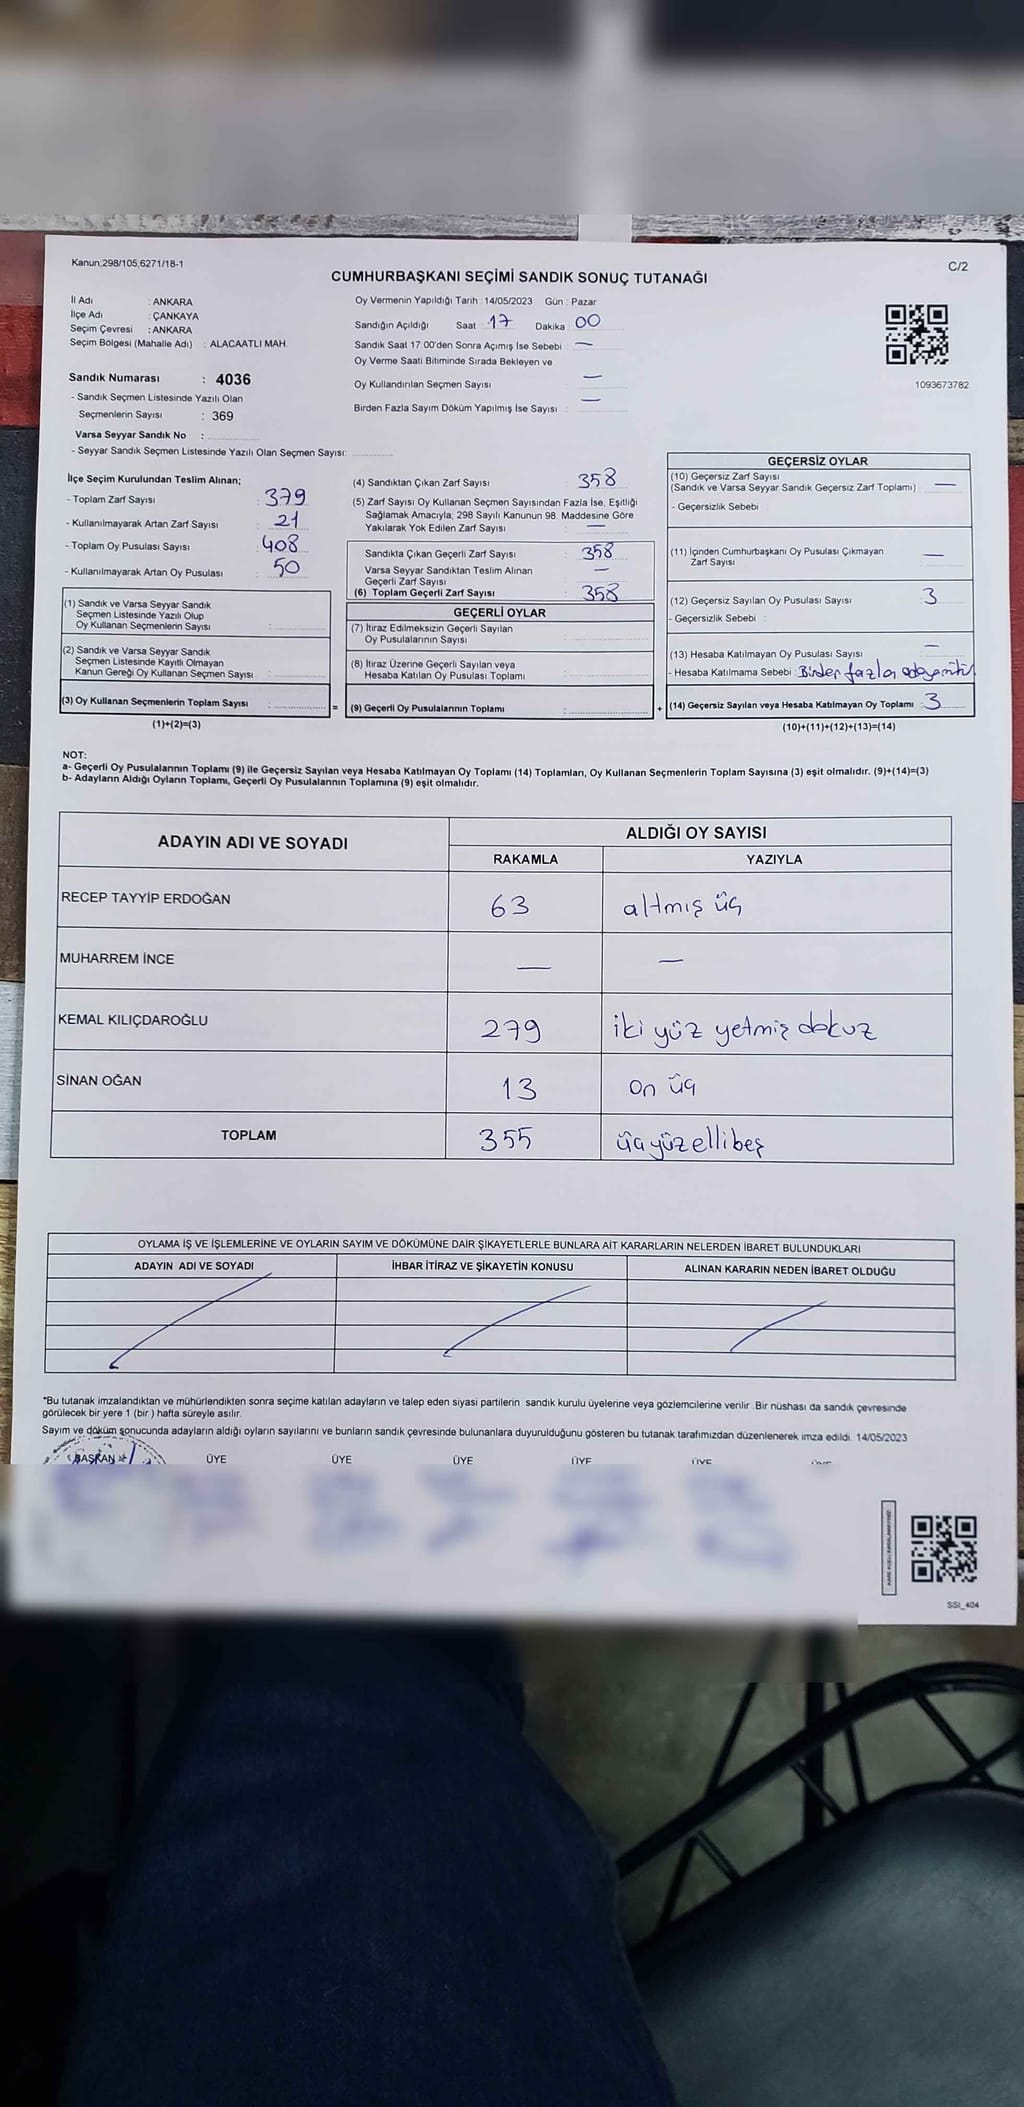 Kanun,298/105,6271/18-1
C/2
CUMHURBAŞKANI SEÇİMİ SANDIK SONUÇ TUTANAĞI
İl Adı : ANKARA
İlçe Adı : ÇANKAYA
Seçim Çevresi : ANKARA
Seçim Bölgesi (Mahalle Adı) : ALACAATLI MAH.
Sandık Numarası : 4036
- Sandık Seçmen Listesinde Yazılı Olan
Seçmenlerin Sayısı : 369
Varsa Seyyar Sandık No :
- Seyyar Sandık Seçmen Listesinde Yazılı Olan Seçmen Sayısı:
Oy Vermenin Yapıldığı Tarih : 14/05/2023 Gün : Pazar
Sandığın Açıldığı Saat : 17 Dakika 00
Sandık Saat 17:00'den Sonra Açımış İse Sebebi : —
Oy Verme Saati Bitiminde Sırada Bekleyen ve
Oy Kullandırılan Seçmen Sayısı : —
Birden Fazla Sayım Döküm Yapılmış İse Sayısı : —
1093673782
İlçe Seçim Kurulundan Teslim Alınan;
- Toplam Zarf Sayısı : 379
- Kullanılmayarak Artan Zarf Sayısı : 21
- Toplam Oy Pusulası Sayısı : 408
- Kullanılmayarak Artan Oy Pusulası : 50
(1) Sandık ve Varsa Seyyar Sandık
Seçmen Listesinde Yazılı Olup
Oy Kullanan Seçmenlerin Sayısı :
(2) Sandık ve Varsa Seyyar Sandık
Seçmen Listesinde Kayıtlı Olmayan
Kanun Gereği Oy Kullanan Seçmen Sayısı :
(3) Oy Kullanan Seçmenlerin Toplam Sayısı :
(1)+(2)=(3)
(4) Sandıktan Çıkan Zarf Sayısı : 358
(5) Zarf Sayısı Oy Kullanan Seçmen Sayısından Fazla İse, Eşitliği
Sağlamak Amacıyla, 298 Sayılı Kanunun 98. Maddesine Göre
Yakılarak Yok Edilen Zarf Sayısı : —
Sandıkta Çıkan Geçerli Zarf Sayısı : 358
Varsa Seyyar Sandıktan Teslim Alınan
Geçerli Zarf Sayısı : —
(6) Toplam Geçerli Zarf Sayısı : 358
GEÇERLİ OYLAR
(7) İtiraz Edilmeksizin Geçerli Sayılan
Oy Pusulalarının Sayısı :
(8) İtiraz Üzerine Geçerli Sayılan veya
Hesaba Katılan Oy Pusulası Toplamı :
= (9) Geçerli Oy Pusulalarının Toplamı :
GEÇERSİZ OYLAR
(10) Geçersiz Zarf Sayısı
(Sandık ve Varsa Seyyar Sandık Geçersiz Zarf Toplamı) : —
- Geçersizlik Sebebi :
(11) İçinden Cumhurbaşkanı Oy Pusulası Çıkmayan
Zarf Sayısı : —
(12) Geçersiz Sayılan Oy Pusulası Sayısı : 3
- Geçersizlik Sebebi :
(13) Hesaba Katılmayan Oy Pusulası Sayısı : —
- Hesaba Katılmama Sebebi : Birden fazla
+ (14) Geçersiz Sayılan veya Hesaba Katılmayan Oy Toplamı : 3
(10)+(11)+(12)+(13)=(14)
NOT:
a- Geçerli Oy Pusulalarının Toplamı (9) ile Geçersiz Sayılan veya Hesaba Katılmayan Oy Toplamı (14) Toplamları, Oy Kullanan Seçmenlerin Toplam Sayısına (3) eşit olmalıdır. (9)+(14)=(3)
b- Adayların Aldığı Oyların Toplamı, Geçerli Oy Pusulalarının Toplamına (9) eşit olmalıdır.
ADAYIN ADI VE SOYADI
ALDIĞI OY SAYISI
RAKAMLA YAZIYLA
RECEP TAYYİP ERDOĞAN 63 altmış üç
MUHARREM İNCE — —
KEMAL KILIÇDAROĞLU 279 iki yüz yetmiş dokuz
SİNAN OĞAN 13 on üç
TOPLAM 355 üçyüzellibeş
OYLAMA İŞ VE İŞLEMLERİNE VE OYLARIN SAYIM VE DÖKÜMÜNE DAİR ŞİKAYETLERLE BUNLARA AİT KARARLARIN NELERDEN İBARET BULUNDUKLARI
ADAYIN ADI VE SOYADI İHBAR İTİRAZ VE ŞİKAYETİN KONUSU ALINAN KARARIN NEDEN İBARET OLDUĞU
*Bu tutanak imzalandıktan ve mühürlendikten sonra seçime katılan adayların ve talep eden siyasi partilerin sandık kurulu üyelerine veya gözlemcilerine verilir. Bir nüshası da sandık çevresinde
görülecek bir yere 1 (bir ) hafta süreyle asılır.
Sayım ve döküm sonucunda adayların aldığı oyların sayılarını ve bunların sandık çevresinde bulunanlara duyurulduğunu gösteren bu tutanak tarafımızdan düzenlenerek imza edildi. 14/05/2023
BAŞKAN ÜYE ÜYE ÜYE ÜYE ÜYE
SSI_404